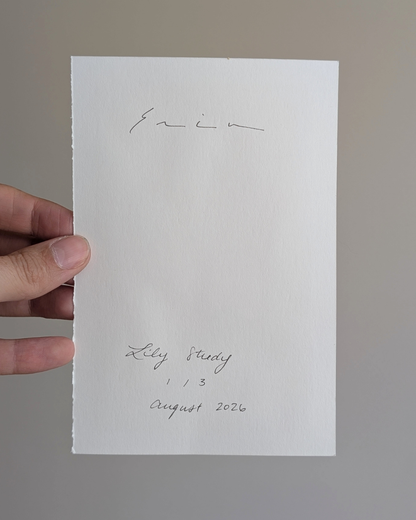 Erin
Lily Study
1 / 3
August 2026